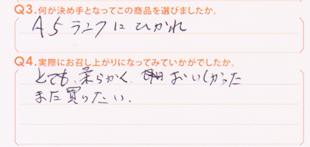 Q3.何が決め手となってこの商品を選びましたか。
A5ランクにひかれ
Q4.実際にお召し上がりになってみていかがでしたか。
とても柔らかく おいしかった
また買りたい.